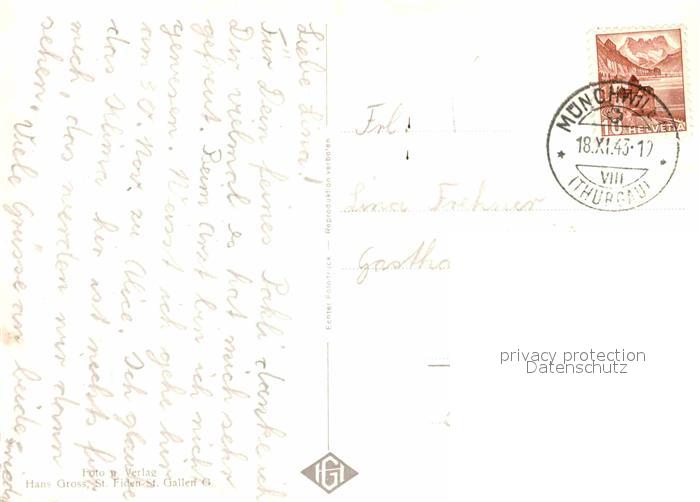 Liebe Lina!
Für Dein feines Päkli danke ich
Dir vielmal es hat mich sehr
gefreut. Beim Arzt bin ich nicht
gewesen. Weisst ich gehe hier
am 30. Nov. zu Alice. Ich glaube
das Klima hir ist nichts für
mich, das werden wir dann
sehen. Viele Grüsse an beide
Echter Fotodruck — Reproduktion verboten
Frl.
Lina Frehner
Gastho
MÜNCHWIL
18.XI.43-19
VIII
(THURGAU)
10 HELVETIA
privacy protection
Datenschutz
HG
Foto u. Verlag
Hans Gross, St. Fiden-St. Gallen G.